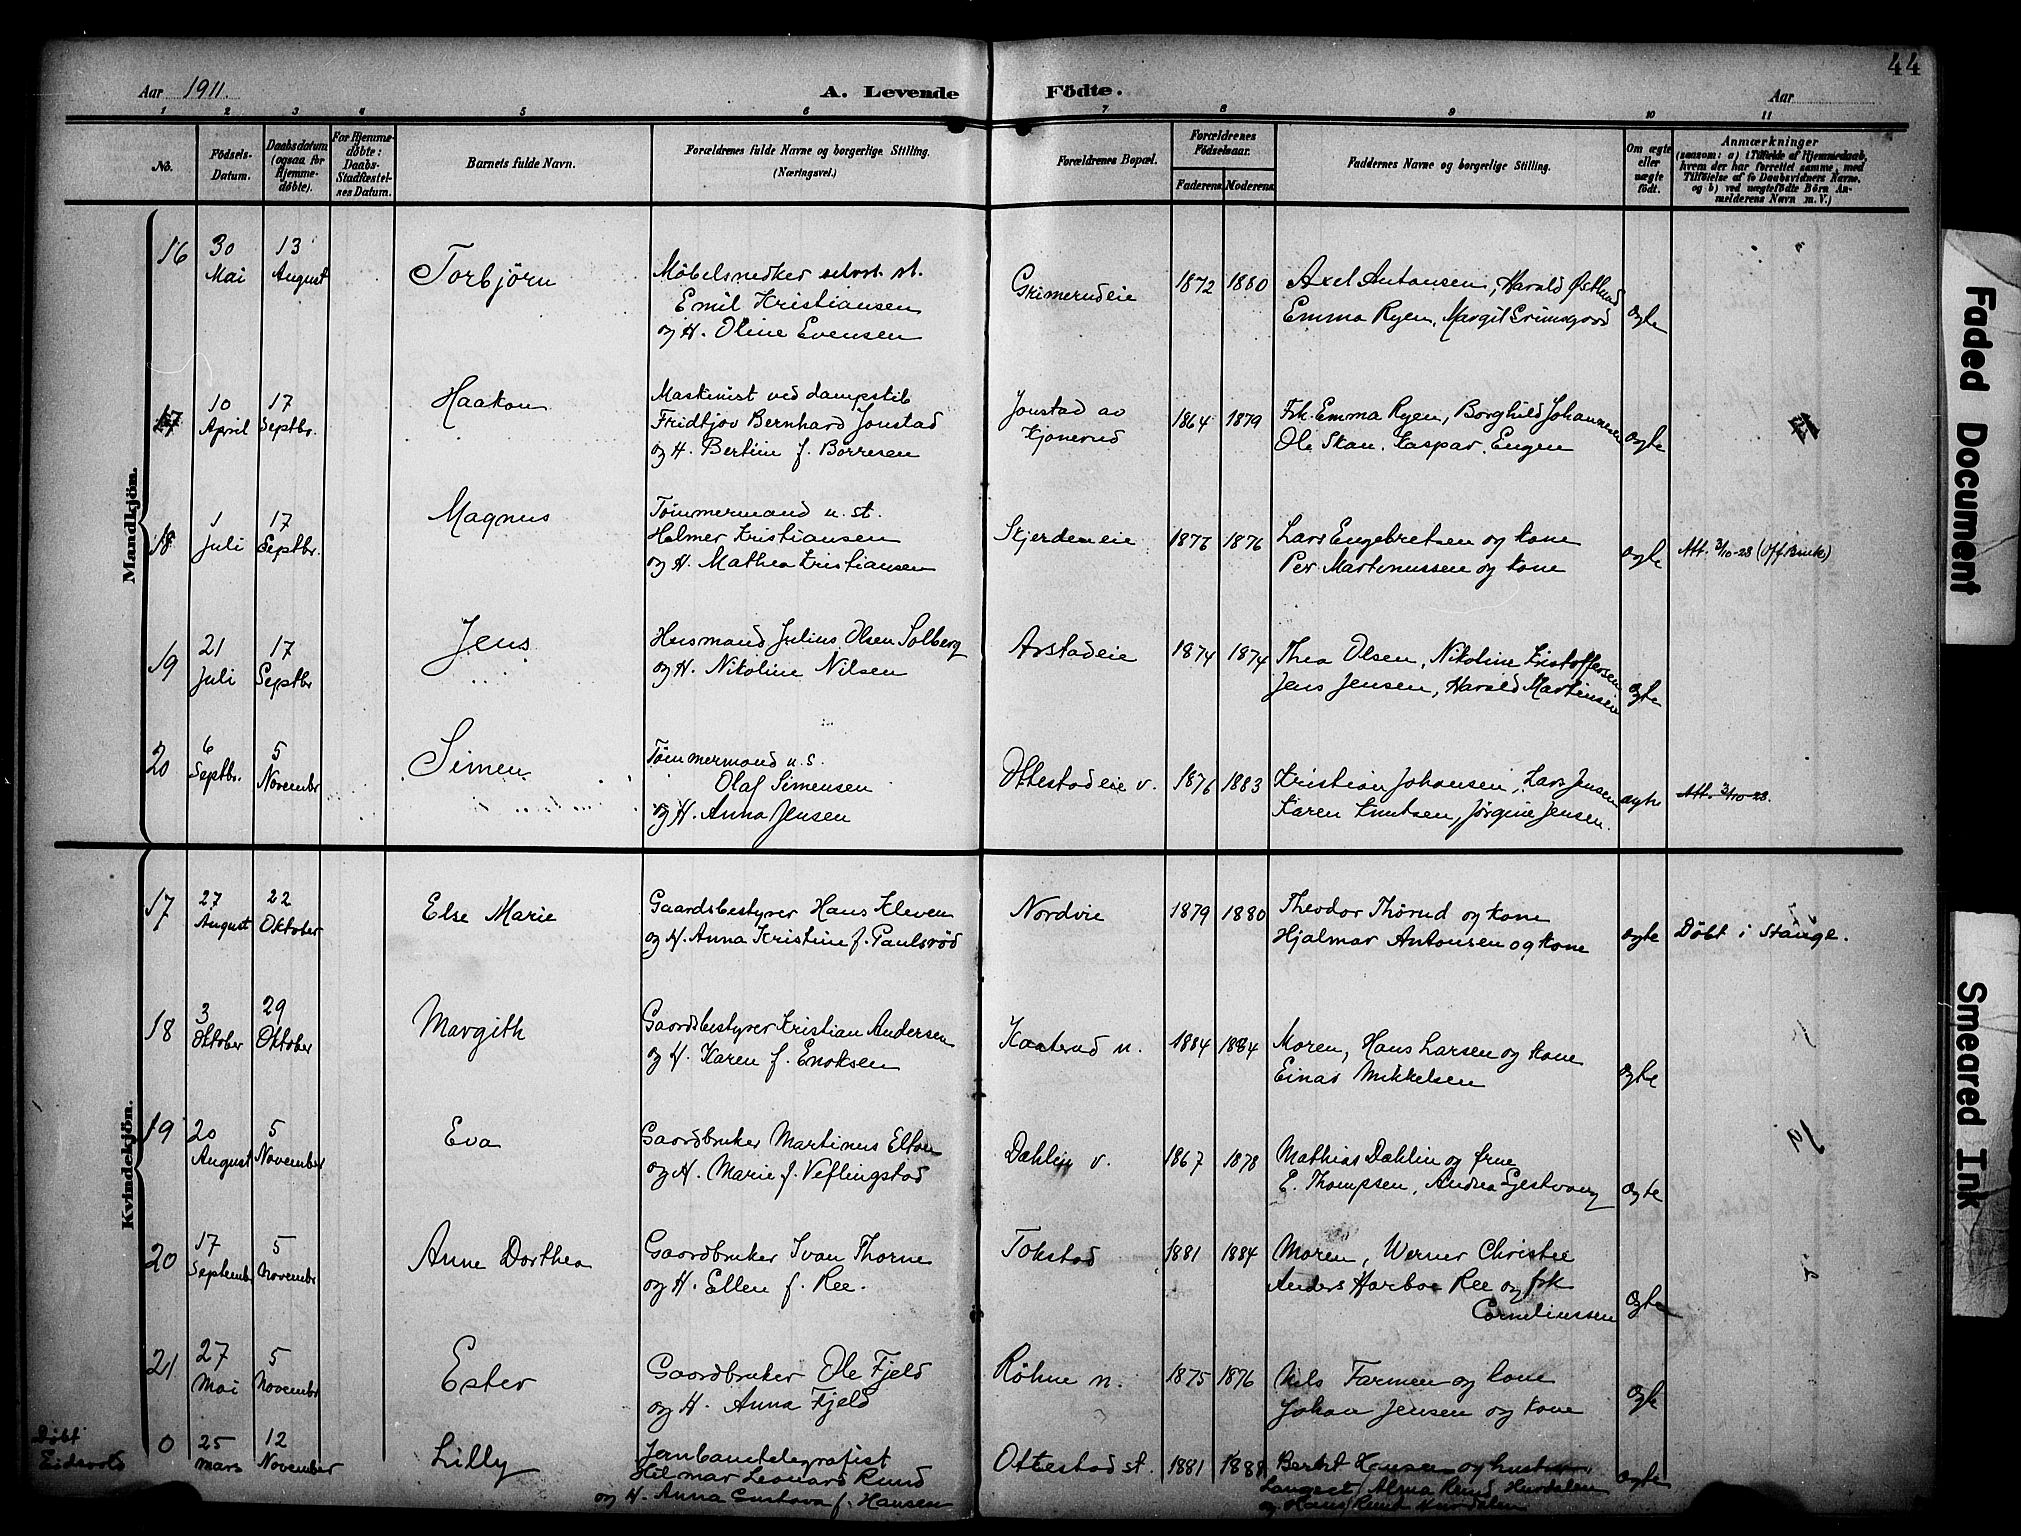 44
Aar 1911.
A. Levende Födte.
Aar
1 2 3 4 5 6 7 8 9 10 11
No.
Födsels-Datum.
Daabsdatum (ogsaa for Hjemme-döbte).
For Hjemme-döbte: Daabs-Stadfæstel-ses Datum.
Barnets fulde Navn.
Forældrenes fulde Navne og borgerlige Stilling. (Næringsvei.)
Forældrenes Bopæl.
Forældrenes Födselsaar.
Faderens Moderens
Faddernes Navne og borgerlige Stilling.
Om ægte eller uægte födt.
Anmærkninger
(saasom: a) i Tilfælde af Hjemmedaab, hvem der har forrettet samme, med Tilföielse af to Daabsvidners Navne, og b) ved uægtefödte Börn An-melderens Navn m. V.)
Mandkjön.
16 30 Mai 13 August Torbjörn
Möbelsnedker selvst. st.
Emil Kristiansen
og H. Oline Evensen
Grimerudeie 1872 1880
Axel Antonsen, Harald Østlund
Emma Ryen, Margit Grimsgard
ægte
17 10 April 17 Septbr. Haakon
Maskinist ved dampskib
Fridtjov Bernhard Jonstad
og H. Bertine f. Borresen
Jonstad av Kjonerud 1864 1879
Frk. Emma Ryen, Borghild Johannesen
Ole Skan, Kaspar Engen
ægte
18 1 Juli 17 Septbr. Magnus
Tömmermand u. st.
Helmer Kristiansen
og H. Mathea Kristiansen
Skjerdeneie 1876
Lars Engebretsen og kone
Per Martinussen og kone
ægte
Att. 3/10-28 (Off Bruk)
19 21 Juli 17 Septbr Jens
Husmand Julius Olsen Solberg
og H. Nikoline Nilsen
Arstadeie 1874 1874
Thea Olsen, Nikoline Kristoffersen
Jens Jensen, Harald Martinsen
ægte
20 6 Septbr. 5 Novembr Simen
Tömmermand u. s.
Olaf Simensen
og H. Anna Jensen
Ottestadeie v. 1876 1883
Kristian Johansen, Lars Jensen
Karen Knutsen, Jörgine Jensen.
ægte
Att. 3/10-28.
Kvindekjön.
17 27 August 22 Oktober Else Marie
Gaardsbestyrer Hans Kleven
og H. Anna Kristine f. Paulsröd
Nordvie 1879 1880
Theodor Thörud og kone
Hjalmar Antonsen og kone
ægte
Döbt i Stange.
18 3 Oktober 29 Oktober Margith
Gaardsbestyrer Kristian Andersen
og H. Karen f. Enoksen
Kaaterud n. 1884 1884
Moren, Hans Larsen og kone
Einar Mikkelsen
ægte
19 20 August 5 November Eva
Gaardbruker Martinus Elton
og H. Marie f. Veflingstad
Dahlin v. 1867 1878
Mathias Dahlin og frue
E. Thompsen, Andrea Gjestvang
ægte
20 17 Septembr 5 Novembr Anne Dorthea
Gaardbruker Ivan Thorne
og H. Ellen f. Ree.
Tokstad 1881 1884
Moren, Werner Christie
Anders Harboe Ree og frk
Corneliussen
ægte
21 27 Mai 5 Novembr Ester
Gaardbruker Ole Fjeld
og H. Anna Fjeld
Röhne n. 1875 1876
Nils Farmen og kone
Johan Jensen og kone
ægte
Döbt Eidsvold
0 25 Mars 12 November Lilly
Jernbanetelegrafist
Hilmar Leonard Rund
og H. Anna Gustava f. Hansen
Ottestad st. 1881
Berht Hansen og hustru
Langset, Alma Rund Hurdalen
og Hans Rund Hurdalen
ægte
Faded Document
Smeared Ink